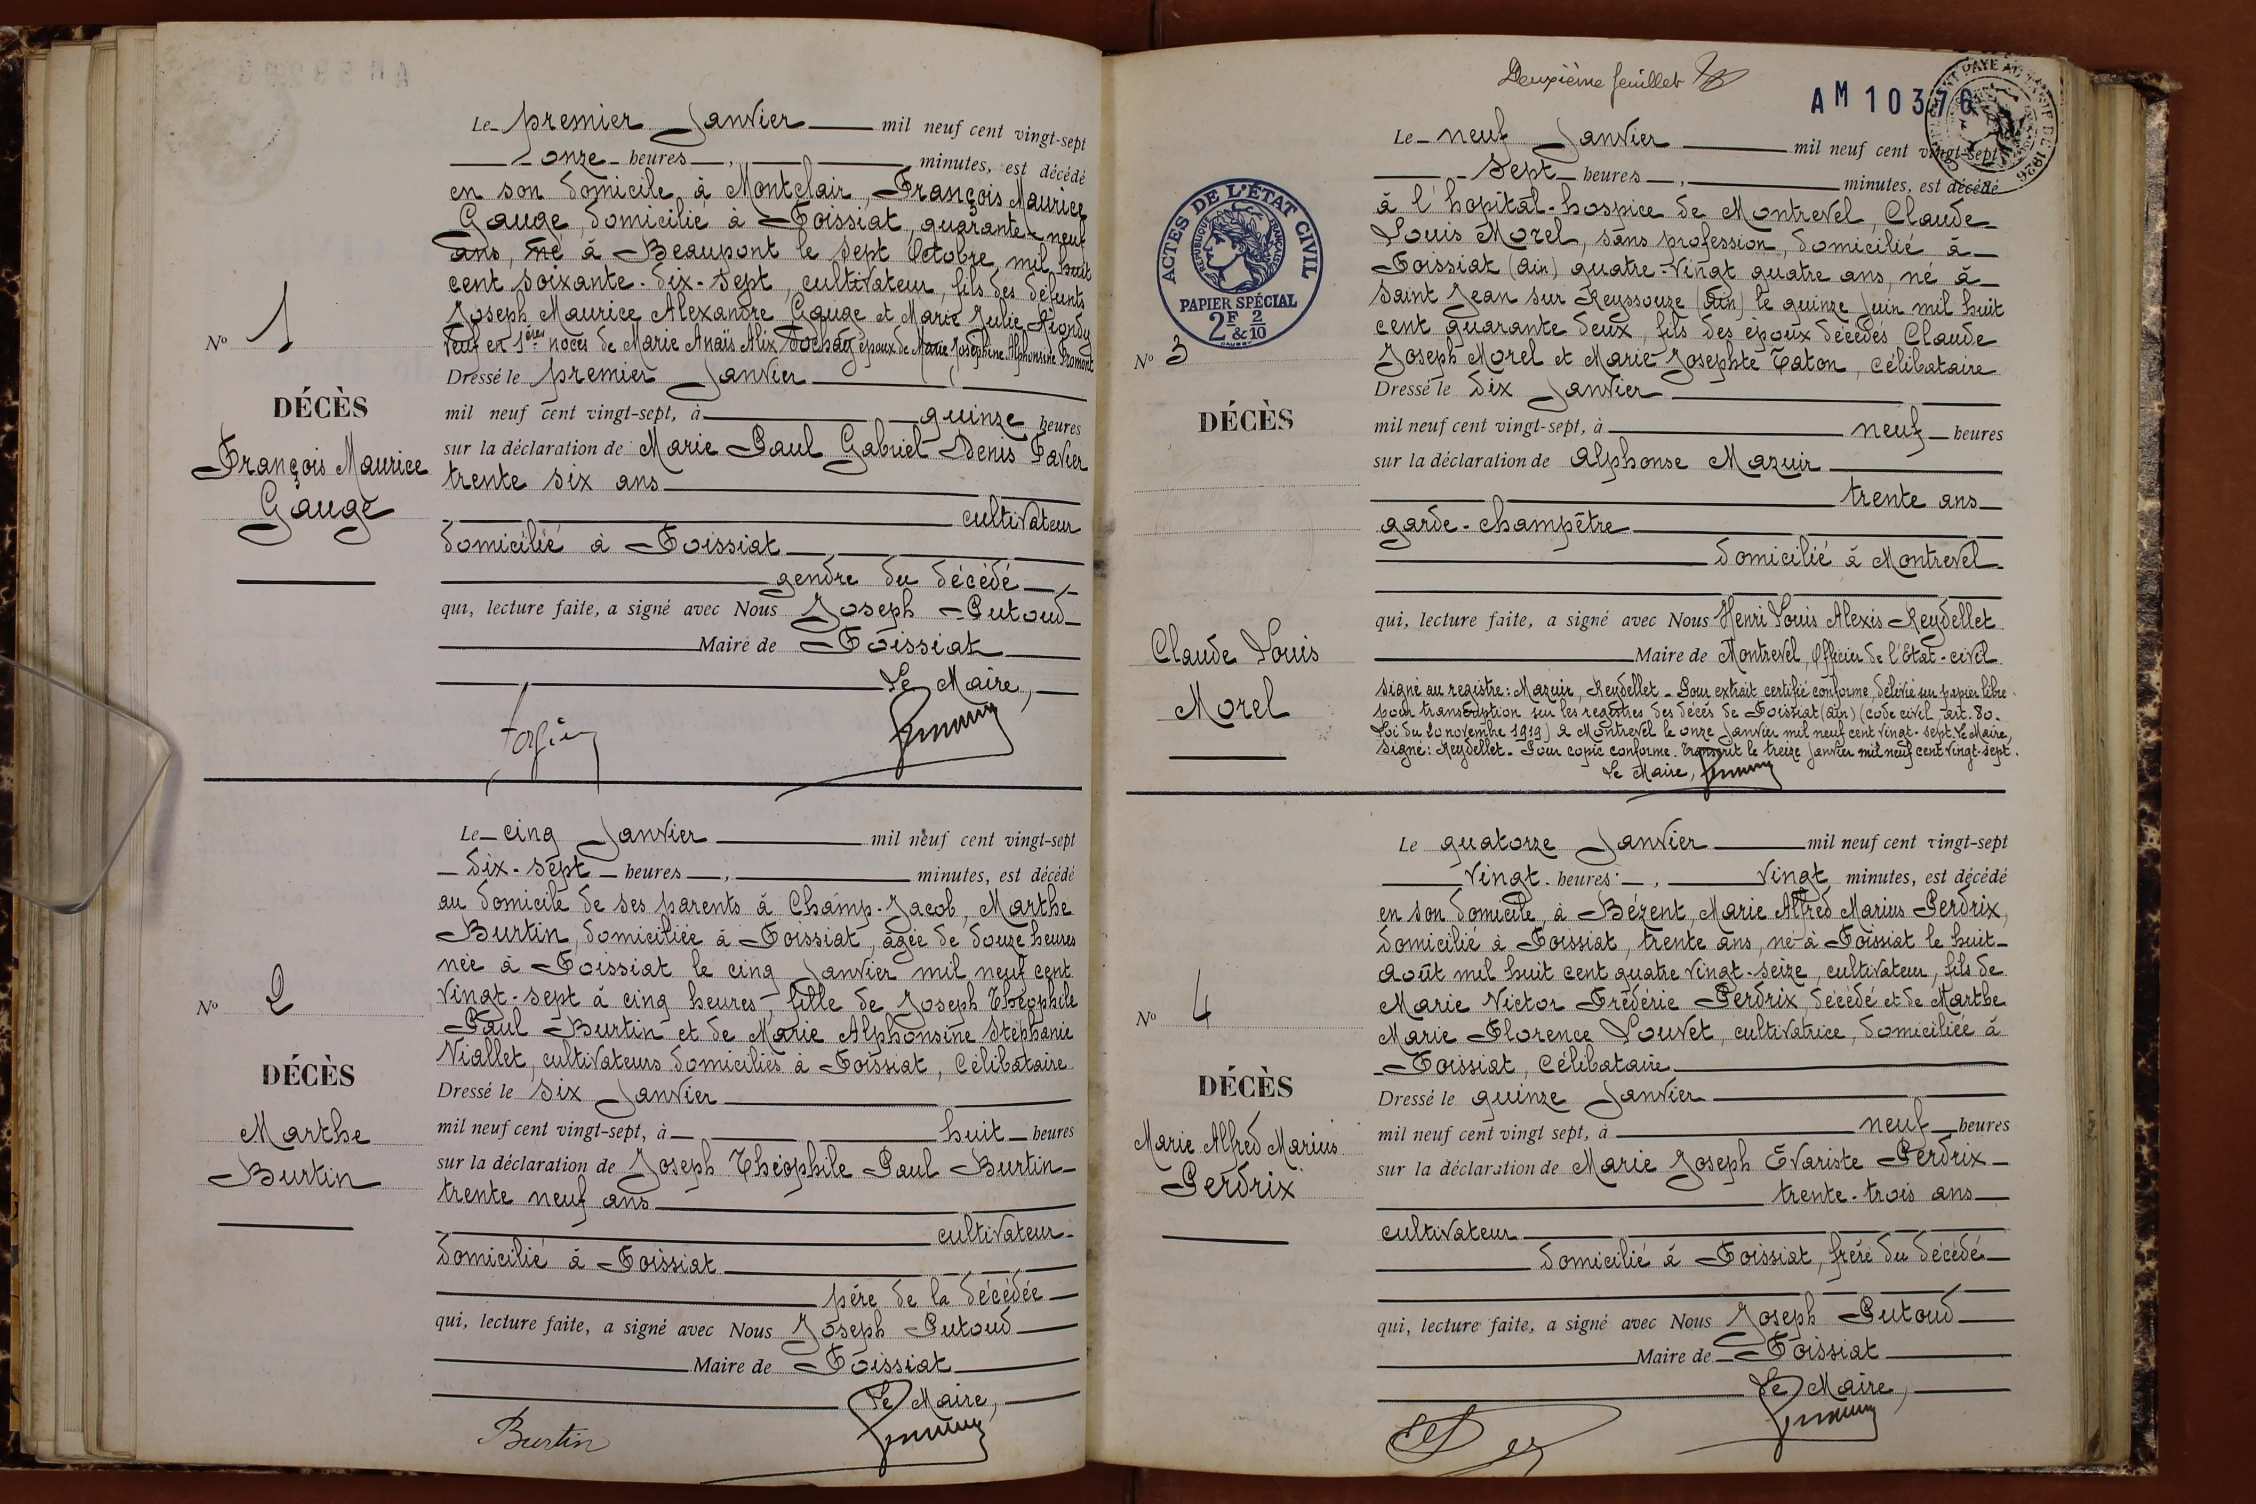 Le premier Janvier mil neuf cent vingt-sept
onze heures, minutes, est décédé
en son domicile à Montclair, François Maurice
Gauge, domicilié à Foissiat, quarante-neuf
ans, né à Beaupont le sept Octobre mil huit
cent soixante-dix-sept, cultivateur, fils des défunts
Joseph Maurice Alexandre Gauge et Marie Julie
Veuf en 1ères noces de Marie Anaïs Alix Sochay époux de Marie Joséphine Alphonsine Promont
Dressé le premier Janvier
mil neuf cent vingt-sept, à quinze heures
sur la déclaration de Marie Paul Gabriel Denis Favier
trente six ans
cultivateur
domicilié à Foissiat
gendre du décédé
qui, lecture faite, a signé avec Nous Joseph Putoud
Maire de Foissiat
Le Maire,
N° 1
DÉCÈS
François Maurice
Gauge
Le cinq Janvier mil neuf cent vingt-sept
dix-sept heures, minutes, est décédé
au domicile de ses parents à Champ-Jacob, Marthe
Burtin, domiciliée à Foissiat, âgée de douze heures
née à Foissiat le cinq Janvier mil neuf cent
vingt-sept à cinq heures, fille de Joseph Théophile
Paul Burtin et de Marie Alphonsine Stéphanie
Viallet, cultivateurs domiciliés à Foissiat, célibataire
Dressé le six Janvier
mil neuf cent vingt-sept, à huit heures
sur la déclaration de Joseph Théophile Paul Burtin
trente neuf ans
cultivateur
domicilié à Foissiat
père de la décédée
qui, lecture faite, a signé avec Nous Joseph Putoud
Maire de Foissiat
Le Maire,
Burtin
N° 2
DÉCÈS
Marthe
Burtin
Deuxième feuillet
AM 10376
ACTES DE L'ÉTAT CIVIL
RÉPUBLIQUE FRANÇAISE
PAPIER SPÉCIAL
2F & 2/10
Le neuf Janvier mil neuf cent vingt-sept
sept heures, minutes, est décédé
à l'hopital-hospice de Montrevel, Claude
Louis Morel, sans profession, domicilié à
Foissiat (Ain) quatre-vingt quatre ans, né à
Saint Jean sur Reyssouze (Ain) le quinze Juin mil huit
cent quarante deux, fils des époux décédés Claude
Joseph Morel et Marie Josephte Taton, célibataire
Dressé le dix Janvier
mil neuf cent vingt-sept, à neuf heures
sur la déclaration de Alphonse Mazuir
trente ans
garde-champêtre
domicilié à Montrevel
qui, lecture faite, a signé avec Nous Henri Louis Alexis Reydellet
Maire de Montrevel, Officier de l'Etat-civil
Signé au registre: Mazuir, Reydellet - Pour extrait certifié conforme, délivré sur papier libre
pour transcription sur les registres des décès de Foissiat (Ain) (code civil, art. 80.
Loi du 20 novembre 1919) à Montrevel le onze Janvier mil neuf cent vingt-sept. Le Maire,
Signé: Reydellet - Pour copie conforme. Transcrit le treize Janvier mil neuf cent vingt-sept.
Le Maire,
N° 3
DÉCÈS
Claude Louis
Morel
Le quatorze Janvier mil neuf cent vingt-sept
vingt heures, vingt minutes, est décédé
en son domicile, à Bézent, Marie Alfred Marius Perdrix,
domicilié à Foissiat, trente ans, né à Foissiat le huit
Août mil huit cent quatre vingt-seize, cultivateur, fils de
Marie Victor Frédéric Perdrix, décédé et de Marthe
Marie Florence Louvet, cultivatrice, domiciliée à
Foissiat, célibataire
Dressé le quinze Janvier
mil neuf cent vingt sept, à neuf heures
sur la déclaration de Marie Joseph Evariste Perdrix
trente-trois ans
cultivateur
domicilié à Foissiat, frère du décédé
qui, lecture faite, a signé avec Nous Joseph Putoud
Maire de Foissiat
Le Maire,
N° 4
DÉCÈS
Marie Alfred Marius
Perdrix